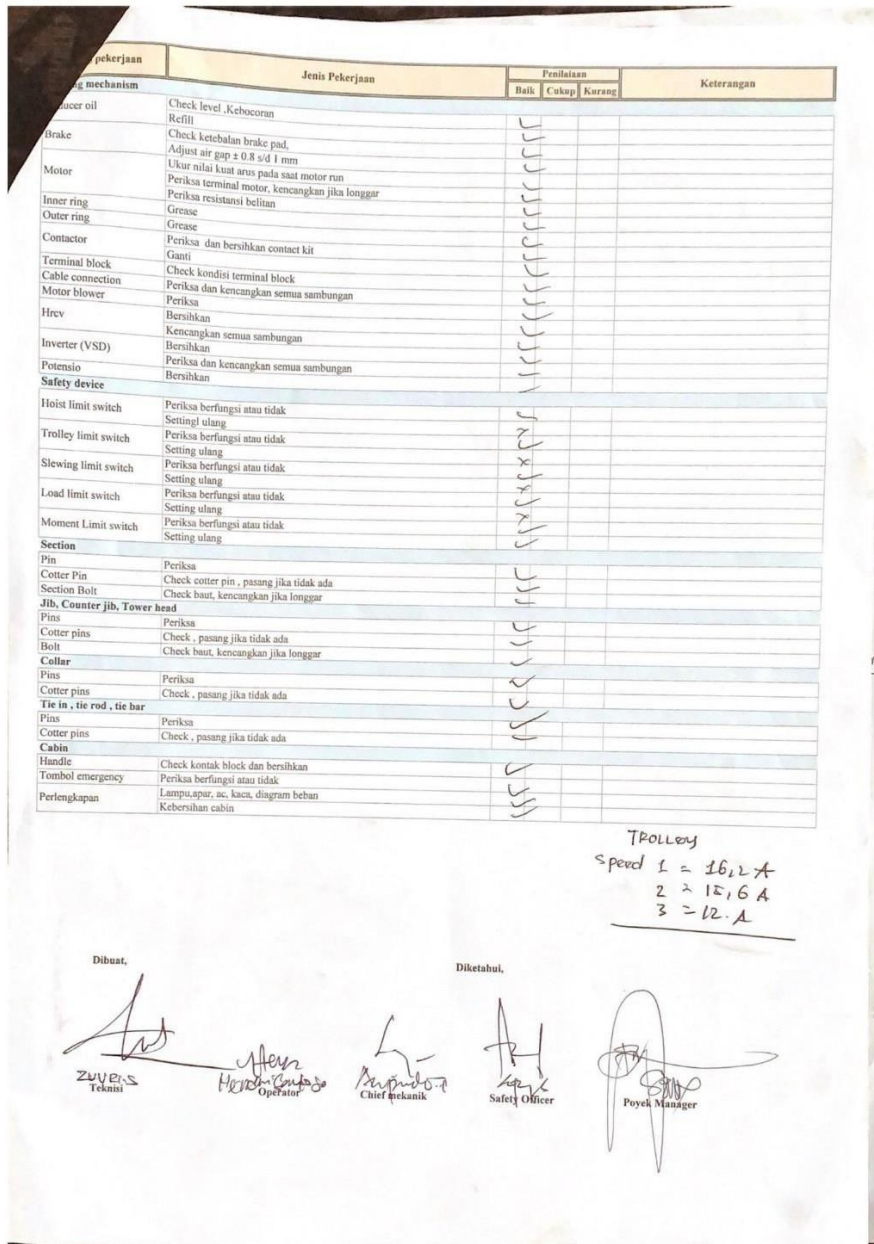 pekerjaan Jenis Pekerjaan Penilaiaan Keterangan
Baik Cukup Kurang
mechanism
oil Check level ,Kebocoran
Refill
Brake Check ketebalan brake pad,
Adjust air gap ± 0.8 s/d 1 mm
Motor Ukur nilai kuat arus pada saat motor run
Periksa terminal motor, kencangkan jika longgar
Periksa resistansi belitan
Inner ring Grease
Outer ring Grease
Contactor Periksa dan bersihkan contact kit
Ganti
Terminal block Check kondisi terminal block
Cable connection Periksa dan kencangkan semua sambungan
Motor blower Periksa
Hrcv Bersihkan
Kencangkan semua sambungan
Inverter (VSD) Bersihkan
Periksa dan kencangkan semua sambungan
Potensio Bersihkan
Safety device
Hoist limit switch Periksa berfungsi atau tidak
Settingl ulang
Trolley limit switch Periksa berfungsi atau tidak
Setting ulang
Slewing limit switch Periksa berfungsi atau tidak
Setting ulang
Load limit switch Periksa berfungsi atau tidak
Setting ulang
Moment Limit switch Periksa berfungsi atau tidak
Setting ulang
Section
Pin Periksa
Cotter Pin Check cotter pin , pasang jika tidak ada
Section Bolt Check baut, kencangkan jika longgar
Jib, Counter jib, Tower head
Pins Periksa
Cotter pins Check , pasang jika tidak ada
Bolt Check baut, kencangkan jika longgar
Collar
Pins Periksa
Cotter pins Check , pasang jika tidak ada
Tie in , tie rod , tie bar
Pins Periksa
Cotter pins Check , pasang jika tidak ada
Cabin
Handle Check kontak block dan bersihkan
Tombol emergency Periksa berfungsi atau tidak
Perlengkapan Lampu,apar, ac, kaca, diagram beban
Kebersihan cabin
TROLLEY
Speed 1 = 16,2 A
2 = 15,6 A
3 = 12. A
Dibuat, Diketahui,
Teknisi Operator Chief mekanik Safety Officer Poyek Manager